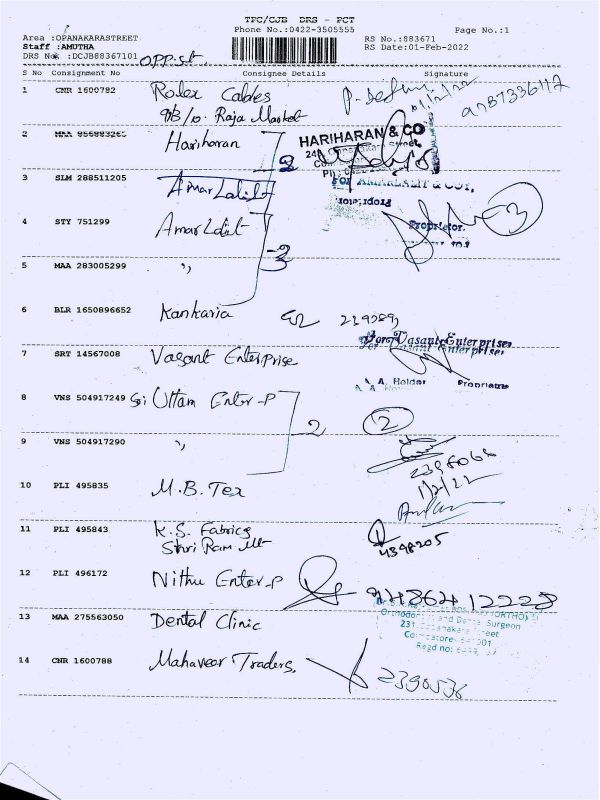 TPC/CJB DRS - PCT
Phone No.:0422-3505555
Page No.:1
Area :OPANAKARASTREET
RS No.:883671
Staff :AMUTHA
RS Date:01-Feb-2022
DRS No :DCJB88367101 OPP.St.
S No Consignment No Consignee Details Signature
1 CNR 1600782 Rolex Cables
9B/10. Raja Market
2 MAA 856883265 Hariharan 2
HARIHARAN & CO
3 SLM 288511205 Amar Lalit
For AMARLALIT & COY,
Proprietor.
4 STY 751299 Amar Lalit 3
Proprietor.
3
5 MAA 283005299 "
6 BLR 1650896652 Kankaria
For Vasant Enterprises
7 SRT 14567008 Vasant Enterprise
A.A. Holder Proprietrix
8 VNS 504917249 Sri Uttam Enter-P 2 2
9 VNS 504917290 "
1/2/22
10 PLI 495835 M.B. Tex
11 PLI 495843 K.S. Fabrics
Shri Ram Mt
4398205
12 PLI 496172 Nithu Enter-P 9486412228
13 MAA 275563050 Dental Clinic
and Dental Surgeon
231
Regd no:
14 CNR 1600788 Mahaveer Traders, 2390536